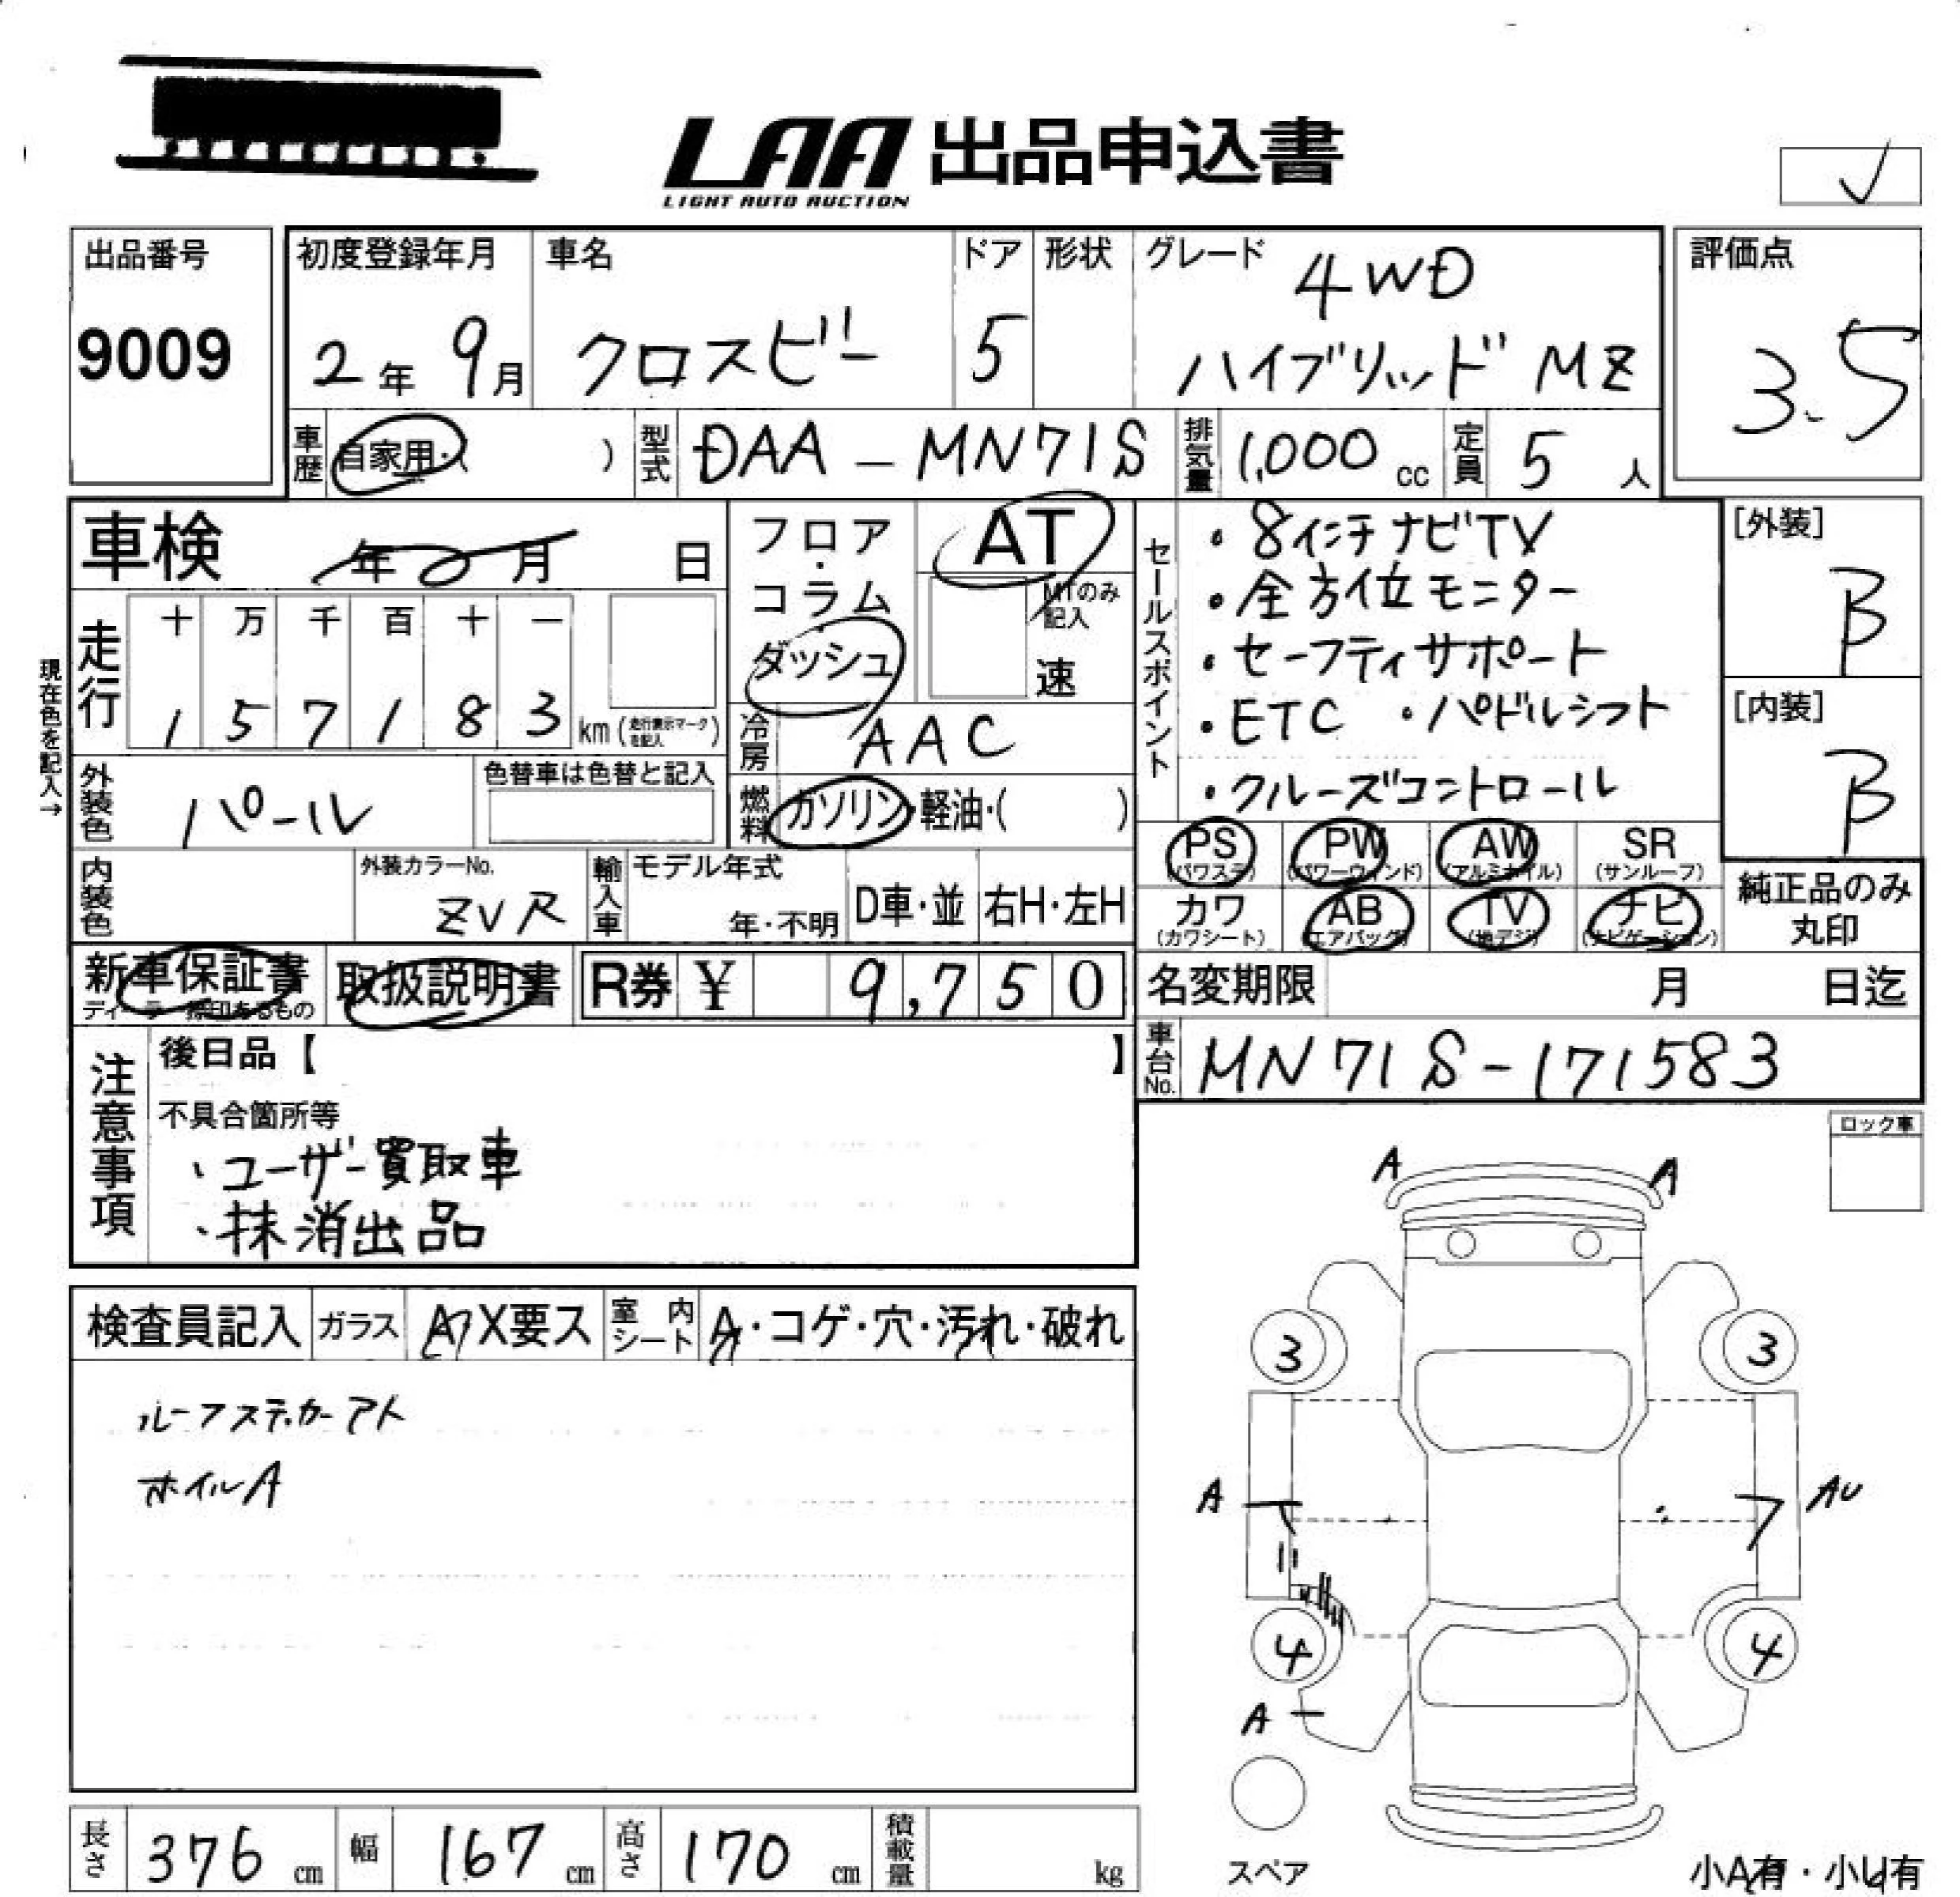 LAA 出品申込書
LIGHT AUTO AUCTION
出品番号
9009
初度登録年月
2年 9月
車名
クロスビー
ドア
5
形状
グレード
4WD
ハイブリッド MZ
評価点
3.5
車歴
自家用・( )
型式
DAA-MN71S
排気量
1,000 cc
定員
5 人
車検
年 月 日
現在色を記入→
走行
十 万 千 百 十 一
1 5 7 1 8 3 km (走行表示マークを記入)
フロア・コラム
ダッシュ
AT
MTのみ記入
速
冷房
AAC
燃料
ガソリン・軽油・( )
外装色
パール
色替車は色替と記入
内装色
外装カラーNo.
ZVR
輸入車
モデル年式
年・不明
D車・並
右H・左H
セールスポイント
・8インチナビTV
・全方位モニター
・セーフティサポート
・ETC ・パドルシフト
・クルーズコントロール
[外装]
B
[内装]
B
PS (パワステ)
PW (パワーウィンド)
AW (アルミホイル)
SR (サンルーフ)
カワ (カワシート)
AB (エアバッグ)
TV (地デジ)
ナビ (ナビゲーション)
純正品のみ
丸印
新車保証書
ディーラー捺印あるもの
取扱説明書
R券 ¥ 9,750
名変期限 月 日迄
車台No.
MN71S-171583
注意事項
後日品【 】
不具合箇所等
・ユーザー買取車
・抹消出品
ロック車
検査員記入
ガラス
A X要ス
室内シート
A・コゲ・穴・汚れ・破れ
ルーフステッカーアト
ホイルA
A A
3 3
A AU
4 4
A
スペア
小A有・小U有
長さ 376 cm
幅 167 cm
高さ 170 cm
積載量 kg